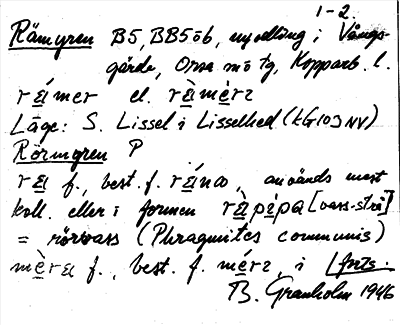 1-2.
Rämyren B5, BB5öb, nyodling i Vångs-
gärde, Orsa sn o tg, Kopparb. l.
rǽmer el. ræ̀mèrz
Läge: S. Lissel i Lisselhed (kG103NV)
Rörmyren P
ræ f., best. f. rǽna, används mest
koll. eller i formen ræ̀pípa [vass-strå]
= rörvass (Phragmites communis)
mèræ f., best. f. mérz, i forts.
B. Granholm 1946